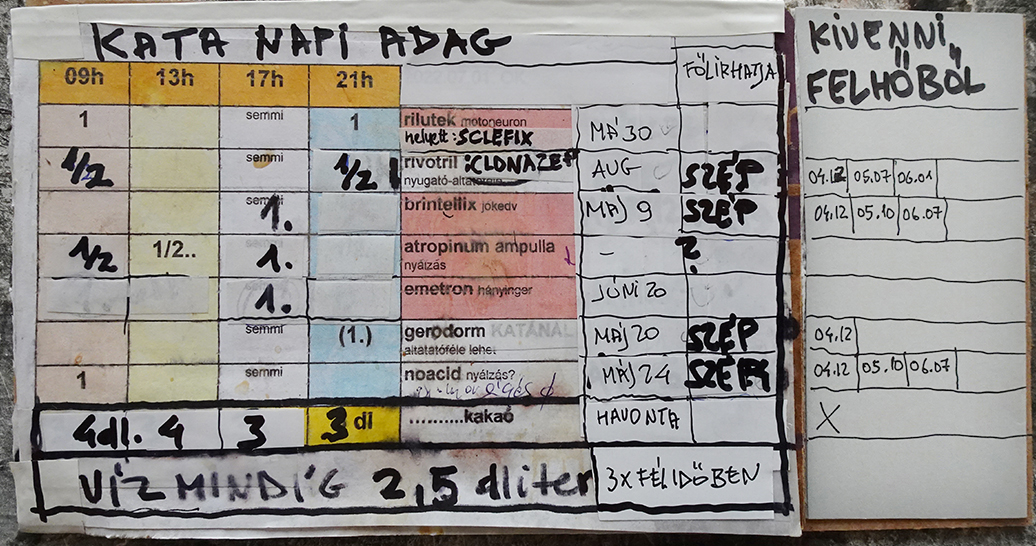 KATA NAPI ADAG
FÖLIRHATJA
KIVENNI
FELHŐBŐL
09h 13h 17h 21h
1 semmi 1 rilutek motoneuron
helyett: SCLEFIX MÁ 30
1/2 semmi 1/2 rivotril :CLONAZEP AUG SZÉP 04.12 05.07 06.01
nyugató-altató
1. brintellix jókedv MÁJ 9 SZÉP 04.12 05.10 06.07
1/2 1/2.. 1. atropinum ampulla - ?
nyálzás
1. emetron hányinger JÚNI 20
semmi (1.) gerodorm KATÁNÁL MÁJ 20 SZÉP 04.12
altatóféle lehet
1 semmi noacid nyálzás? MÁJ 24 04.12 05.10 06.07
4dl. 4 3 3 dl ..........kakaó HAVONTA X
VÍZ MINDÍG 2,5 dliter 3X FÉLIDŐBEN